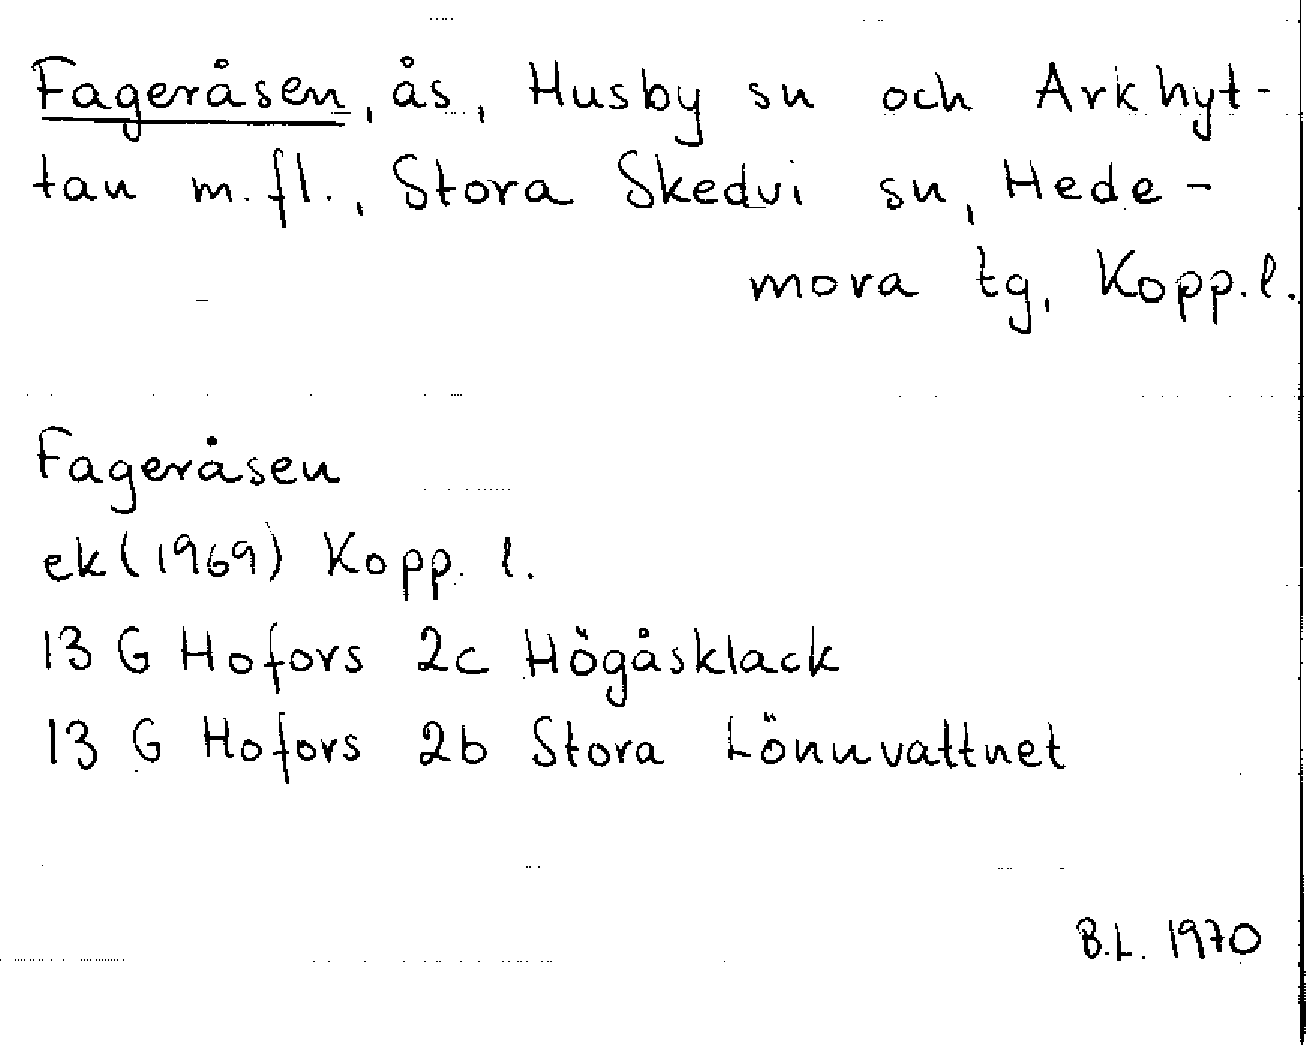 Fageråsen, ås, Husby sn och Arkhyt-
tan m.fl., Stora Skedvi sn, Hede-
mora tg, Kopp.l.
Fageråsen
ek (1969) Kopp. l.
13 G Hofors 2c Högåsklack
13 G Hofors 2b Stora Lönnvattnet
B.L. 1970